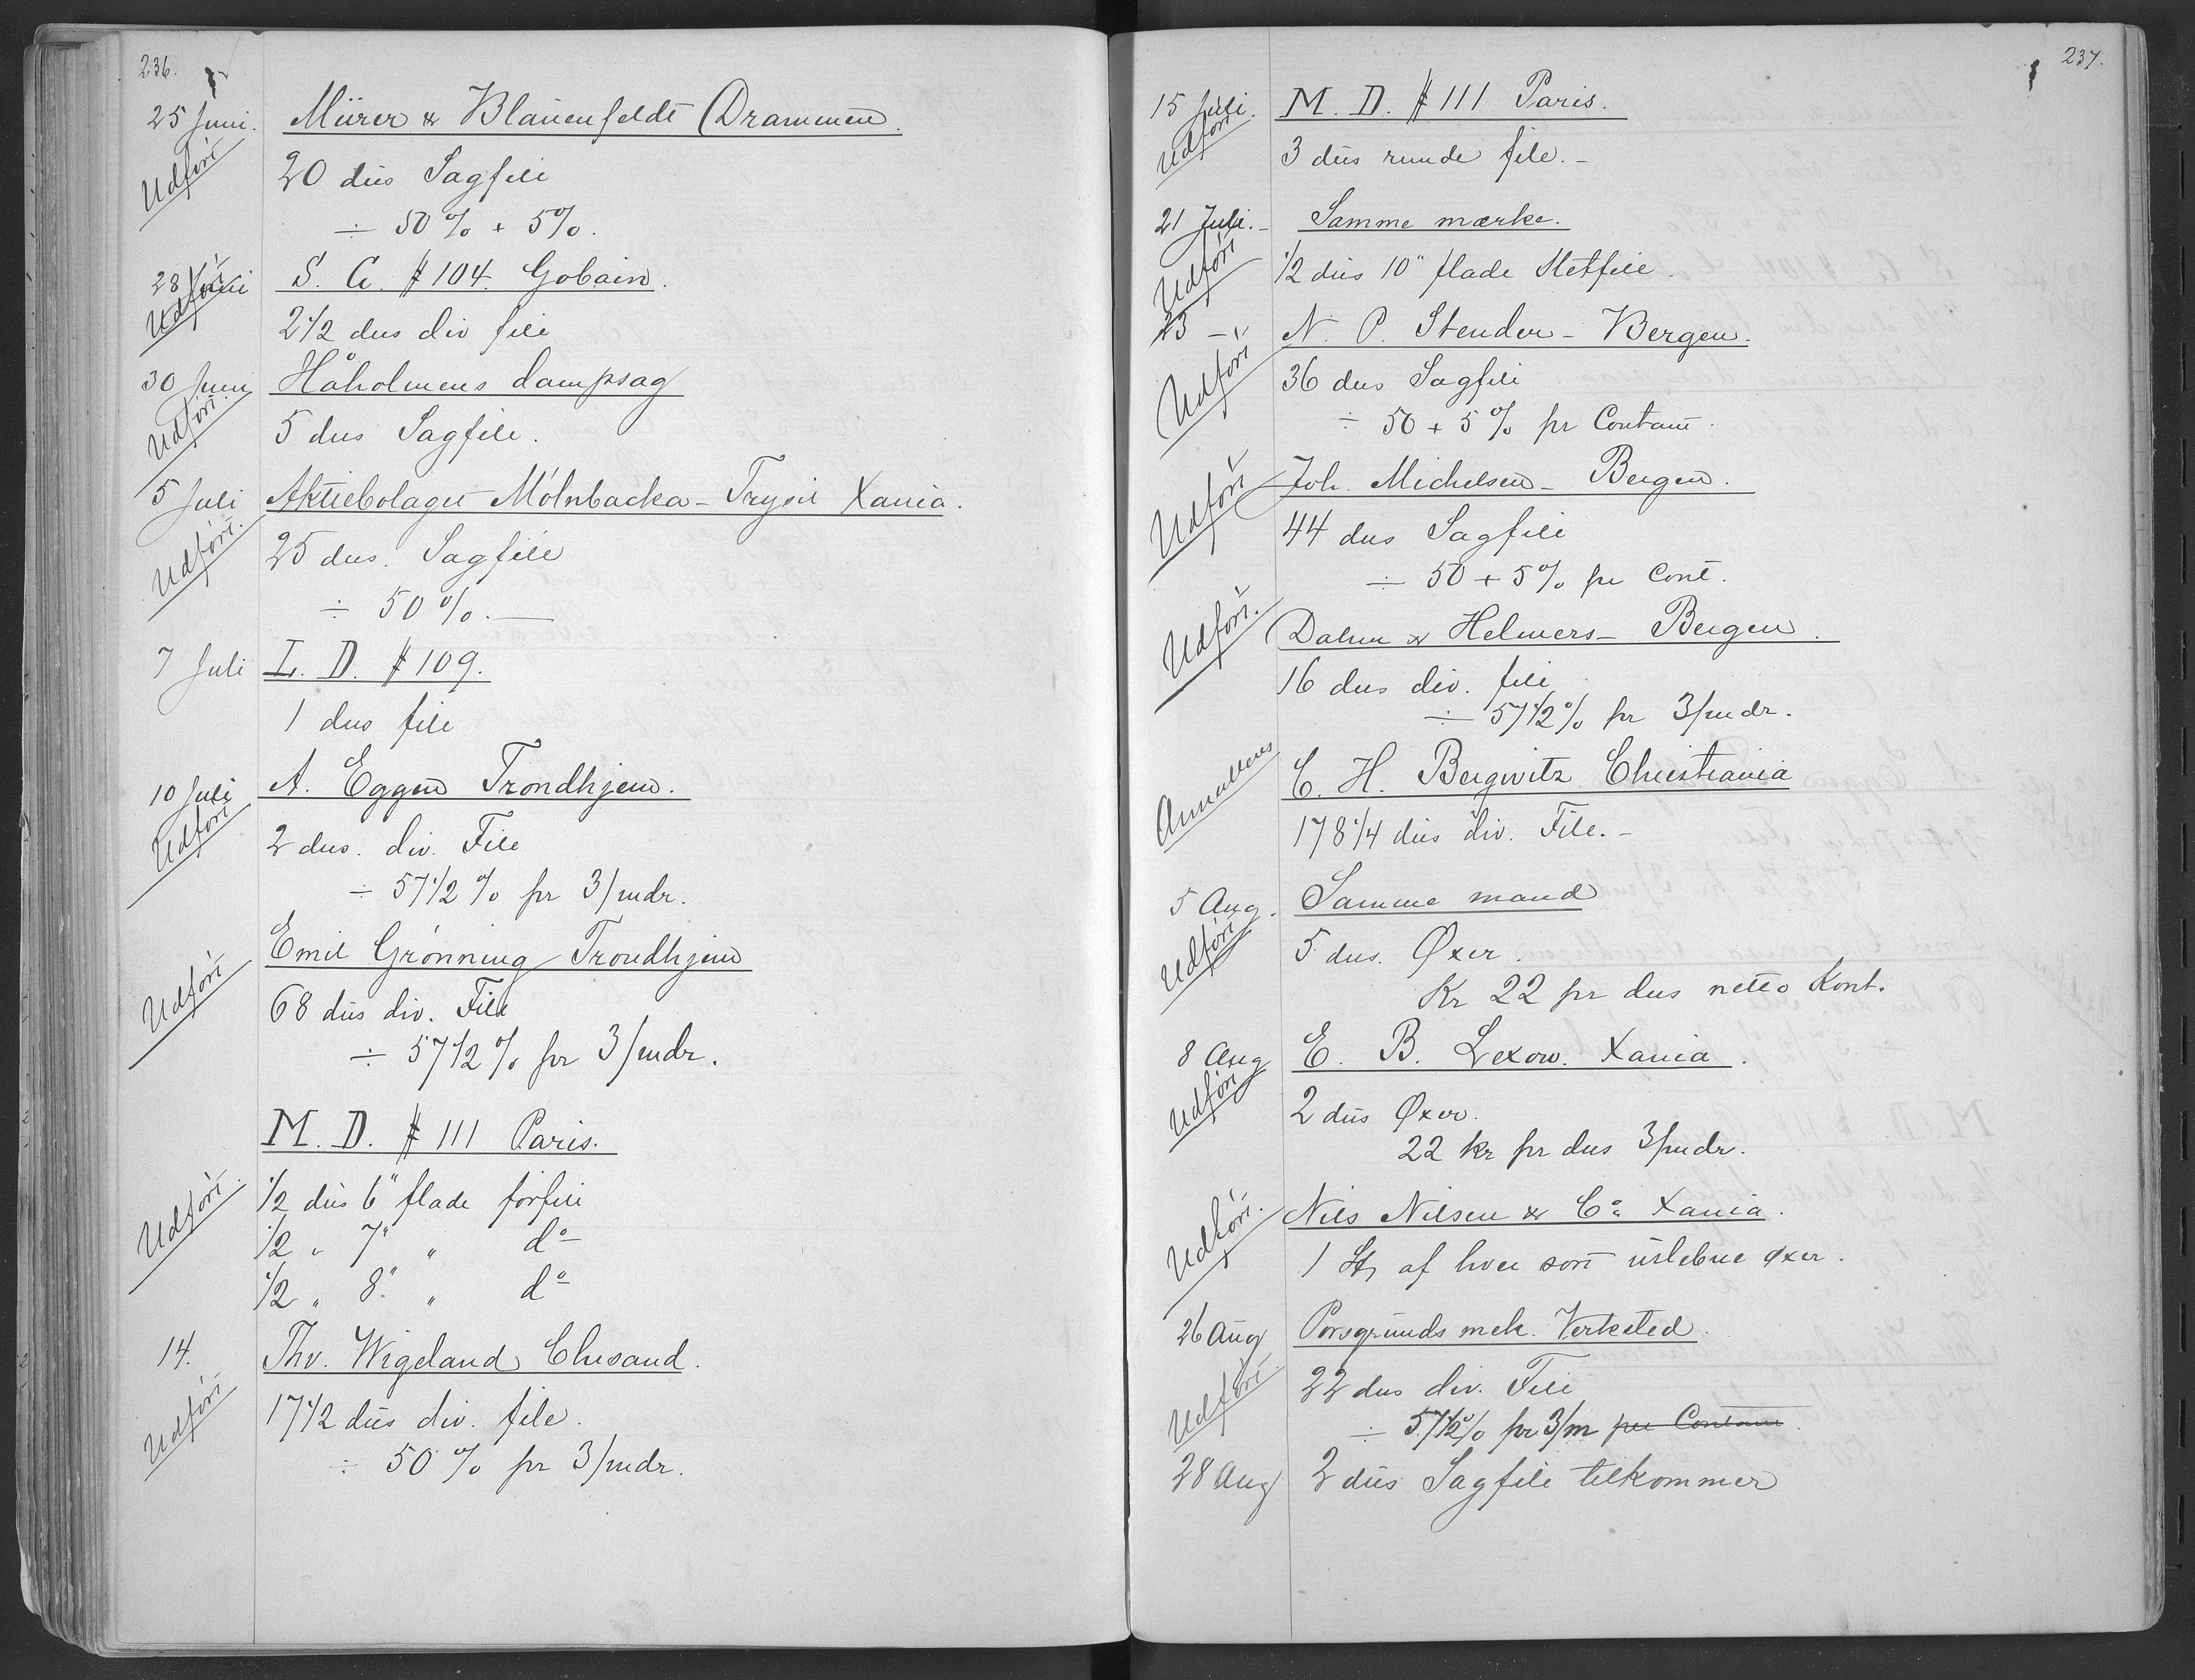 236.
25 Juni. Mürer & Blauenfeldt (Drammen.
Udført
20 dus Sagfile
÷ 50 % + 5 %.
28 Juni S. G. # 104. Gobain.
Udført
2 1/2 dus div file
30 Juni Håholmens dampsag
Udført.
5 dus Sagfile.
5 Juli Aktiebolaget Mölnbacka - Trysil Xania.
Udført.
25 dus. Sagfile
÷ 50 %. —
7 Juli L. D. # 109.
1 dus file
10 Juli A. Eggen Trondhjem.
Udført
2 dus. div. File
÷ 57 1/2 % pr 3/mdr.
Emil Grønning Trondhjem
Udført
68 dus div. File
÷ 57 1/2 % pr 3/mdr.
M. D. # 111 Paris.
Udført.
1/2 dus 6" flade forfile
1/2 " 7" " do
1/2 " 8" " do
14. Thv. Wigeland Chrsand.
Udført
17 1/2 dus div. file.
÷ 50 % pr 3/mdr.
237.
15 Juli. M. D. # 111 Paris.
Udført
3 dus runde file. -
21 Juli. - Samme mærke.
Udført
1/2 dus 10" flade Sletfile.
23 - " N. P. Stender - Bergen.
Udført
36 dus Sagfile
÷ 50 + 5 % pr Contant.
Joh. Michelsen - Bergen.
Udført
44 dus Sagfile
÷ 50 + 5 % pr Cont.
Udført.
Dahm & Helmers - Bergen.
16 dus div. file
÷ 57 1/2 % pr 3/mdr.
Annulleres
C. H. Bergwitz Christiania
178 1/4 dus div. File. -
5 Aug. Samme mand
Udført
5 dus. Øxer.
Kr 22 pr dus netto Kont.
8 Aug E. B. Lexow. Xania.
Udført
2 dus Øxer.
22 kr pr dus 3/mdr.
Udført. Nils Nilsen & Co Xania.
1 St af hver sort uslebne øxer.
26 Aug Porsgrunds mek. Verksted.
Udført
22 dus div. File
÷ 57 1/2 % pr 3/m per Contant.
28 Aug 2 dus Sagfile tilkommer